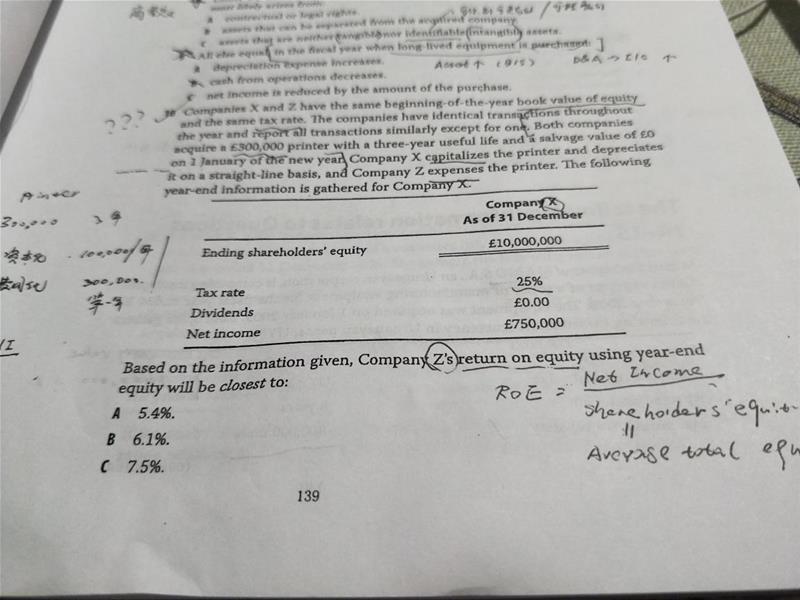 A contractual or legal rights.
B assets that can be separated from the acquired company.
C assets that are neither tangible nor identifiable intangible assets.
All else equal, in the fiscal year when long-lived equipment is purchased: ]
A depreciation expense increases.
Asset ↑ (B/S) D&A → I/S ↑
B cash from operations decreases.
C net income is reduced by the amount of the purchase.
???
Companies X and Z have the same beginning-of-the-year book value of equity
and the same tax rate. The companies have identical transactions throughout
the year and report all transactions similarly except for one. Both companies
acquire a £300,000 printer with a three-year useful life and a salvage value of £0
on 1 January of the new year. Company X capitalizes the printer and depreciates
it on a straight-line basis, and Company Z expenses the printer. The following
year-end information is gathered for Company X.
Printer
300,000 3年
资本化 100,000/年
费用化 300,000.
第一年
Company X
As of 31 December
Ending shareholders' equity £10,000,000
Tax rate 25%
Dividends £0.00
Net income £750,000
Based on the information given, Company Z's return on equity using year-end
equity will be closest to:
A 5.4%.
B 6.1%.
C 7.5%.
ROE = Net Income
shareholders' equit
||
Average total equ
139